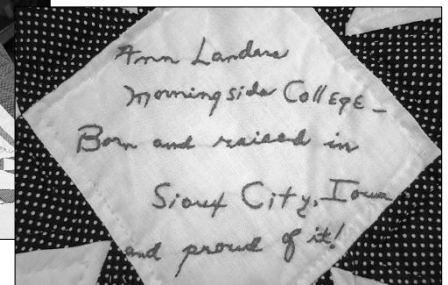 Ann Landers
Morningside College -
Born and raised in
Sioux City, Iowa
and proud of it!